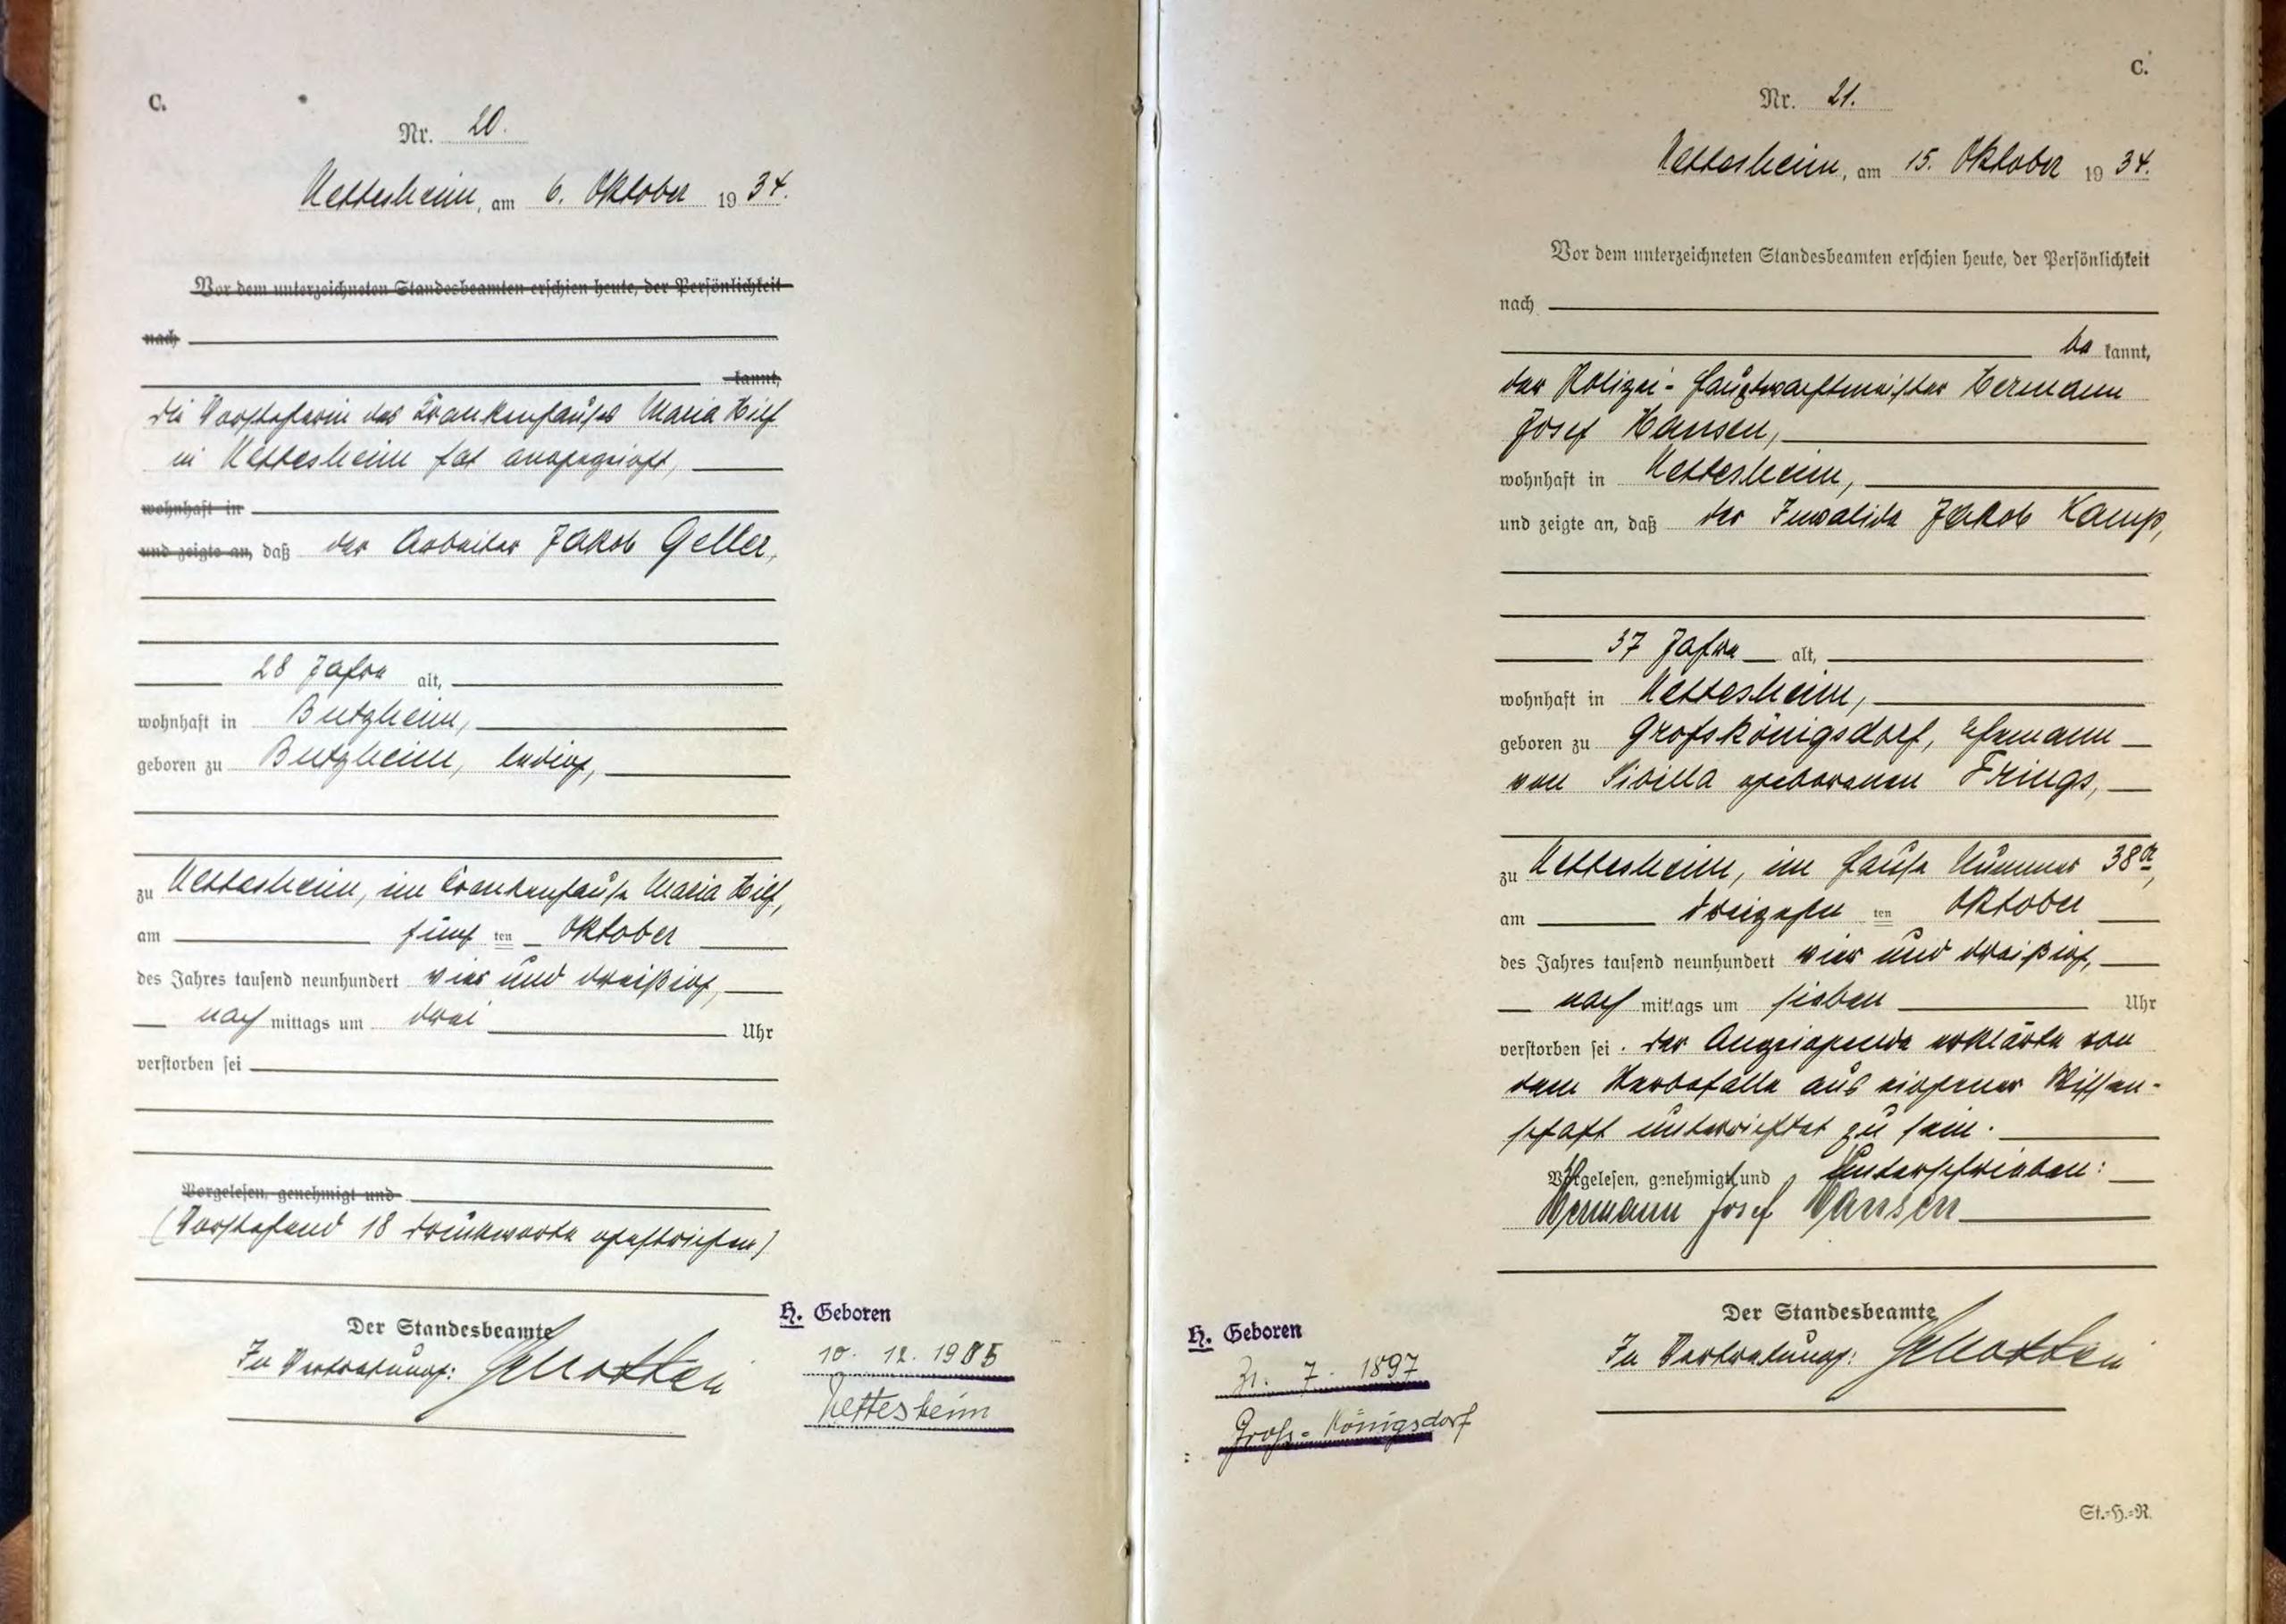 C.
Nr. 20.
Nettesheim, am 6. Oktober 1934.
Vor dem unterzeichneten Standesbeamten erschien heute, der Persönlichkeit
nach
kannt,
die Vorsteherin des Krankenhauses Maria Hilf
in Nettesheim hat angezeigt,
wohnhaft in
und zeigte an, daß der Arbeiter Jakob Geller,
28 Jahre alt,
wohnhaft in Butzheim,
geboren zu Butzheim, ledig,
zu Nettesheim, im Krankenhause Maria Hilf,
am fünf ten Oktober
des Jahres tausend neunhundert vier und dreißig,
nach mittags um drei Uhr
verstorben sei
Vorgelesen, genehmigt und
(Vorstehend 18 Druckworte gestrichen)
Der Standesbeamte
In Vertretung:
H. Geboren
10. 12. 1905
Nettesheim
C.
Nr. 21.
Nettesheim, am 15. Oktober 1934.
Vor dem unterzeichneten Standesbeamten erschien heute, der Persönlichkeit
nach
be kannt,
der Polizei-Hauptwachtmeister Hermann
Josef Hansen,
wohnhaft in Nettesheim,
und zeigte an, daß der Invalide Jakob Kamp,
37 Jahre alt,
wohnhaft in Nettesheim,
geboren zu Großkönigsdorf, Ehemann
von Sibilla geborenen Frings,
zu Nettesheim, im Hause Nummer 38a,
am dreizehn ten Oktober
des Jahres tausend neunhundert vier und dreißig,
nach mittags um sieben Uhr
verstorben sei. Der Anzeigende erklärte von
dem Sterbefalle aus eigener Wissen-
schaft unterrichtet zu sein.
Vorgelesen, genehmigt und unterschrieben:
Hermann Josef Hansen
Der Standesbeamte
In Vertretung:
H. Geboren
7. 1897
Groß-Königsdorf
St.-H.-R.